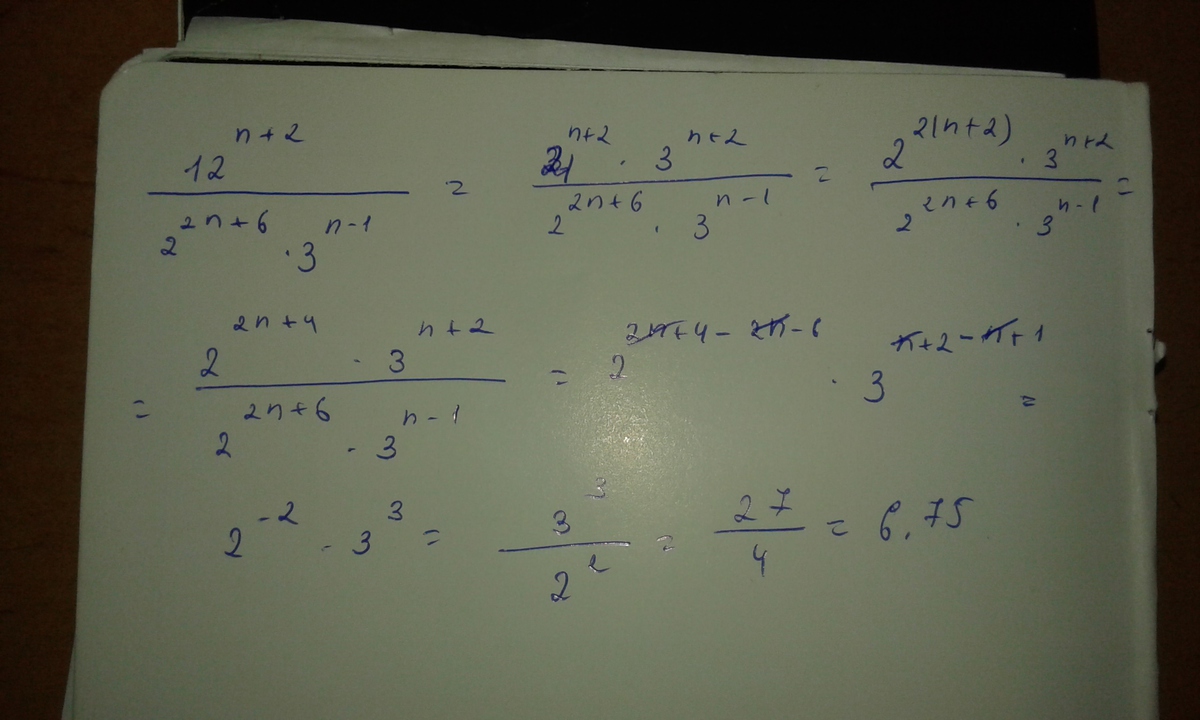 12^{n+2} / (2^{2n+6} · 3^{n-1}) = 4^{n+2} · 3^{n+2} / (2^{2n+6} · 3^{n-1}) = 2^{2(n+2)} · 3^{n+2} / (2^{2n+6} · 3^{n-1}) =
= 2^{2n+4} · 3^{n+2} / (2^{2n+6} · 3^{n-1}) = 2^{2n+4-2n-6} · 3^{n+2-n+1} =
2^{-2} · 3^{3} = 3^{3} / 2^{2} = 27 / 4 = 6.75